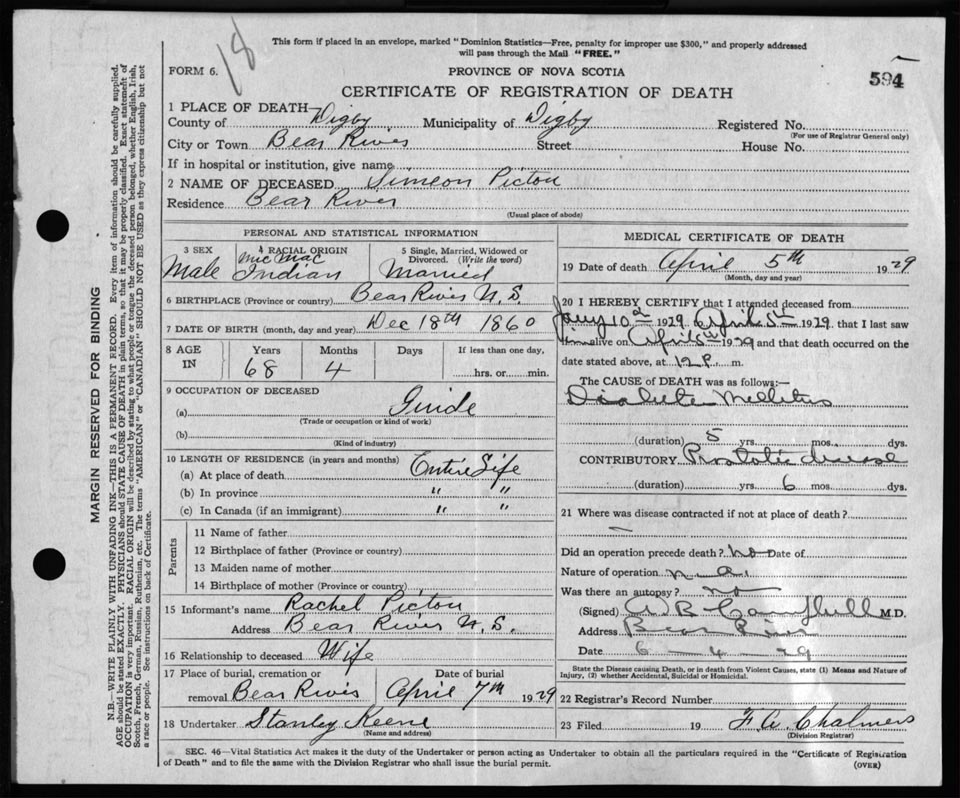 18
This form if placed in an envelope, marked "Dominion Statistics—Free, penalty for improper use $300," and properly addressed
will pass through the Mail "FREE."
FORM 6.
PROVINCE OF NOVA SCOTIA
594
CERTIFICATE OF REGISTRATION OF DEATH
1 PLACE OF DEATH—
County of Digby Municipality of Digby Registered No.
(For use of Registrar General only)
City or Town Bear River Street House No.
If in hospital or institution, give name
2 NAME OF DECEASED Simeon Pictou
Residence Bear River
(Usual place of abode)
PERSONAL AND STATISTICAL INFORMATION
3 SEX 4 RACIAL ORIGIN 5 Single, Married, Widowed or Divorced. (Write the word)
Male Mic Mac Indian Married
6 BIRTHPLACE (Province or country) Bear River N.S.
7 DATE OF BIRTH (month, day and year) Dec 18th 1860
8 AGE IN Years Months Days If less than one day,
68 4 hrs. or min.
9 OCCUPATION OF DECEASED
(a) Guide
(Trade or occupation or kind of work)
(b)
(Kind of industry)
10 LENGTH OF RESIDENCE (in years and months) Entire Life
(a) At place of death
(b) In province " "
(c) In Canada (if an immigrant) " "
Parents
11 Name of father
12 Birthplace of father (Province or country)
13 Maiden name of mother
14 Birthplace of mother (Province or country)
15 Informant's name Rachel Pictou
Address Bear River N.S.
16 Relationship to deceased Wife
17 Place of burial, cremation or removal Bear River Date of burial April 7th 1929
18 Undertaker Stanley Keene
(Name and address)
MEDICAL CERTIFICATE OF DEATH
19 Date of death April 5th 1929
(Month, day and year)
20 I HEREBY CERTIFY that I attended deceased from
Jany 10th 1929 April 5th 1929 that I last saw
him alive on April 5th 1929 and that death occurred on the
date stated above, at 12 P. m.
The CAUSE of DEATH was as follows:—
Diabetes Mellitus
(duration) 5 yrs. mos. dys.
CONTRIBUTORY Prostatic disease
(duration) yrs. 6 mos. dys.
21 Where was disease contracted if not at place of death?
Did an operation precede death? no Date of
Nature of operation n.a.
Was there an autopsy? no
(Signed) A B Campbell M.D.
Address Bear River
Date 6-4-29
State the Disease causing Death, or in death from Violent Causes, state (1) Means and Nature of
Injury, (2) whether Accidental, Suicidal or Homicidal.
22 Registrar's Record Number
23 Filed 19 F. W. Chalmers
(Division Registrar)
SEC. 46—Vital Statistics Act makes it the duty of the Undertaker or person acting as Undertaker to obtain all the particulars required in the "Certificate of Registration
of Death" and to file the same with the Division Registrar who shall issue the burial permit.
(OVER)
MARGIN RESERVED FOR BINDING
N.B.—WRITE PLAINLY WITH UNFADING INK—THIS IS A PERMANENT RECORD. Every item of information should be carefully supplied.
AGE should be stated EXACTLY. PHYSICIANS should STATE CAUSE OF DEATH in plain terms, so that it may be properly classified. Exact statement of
OCCUPATION is very important. RACIAL ORIGIN will be described by stating to what people or tongue the deceased person belonged, whether English, Irish,
Scotch, French, German, Russian, Ruthenian, etc. The terms "AMERICAN" or "CANADIAN" SHOULD NOT BE USED as they express citizenship but not
a race or people. See instructions on back of Certificate.